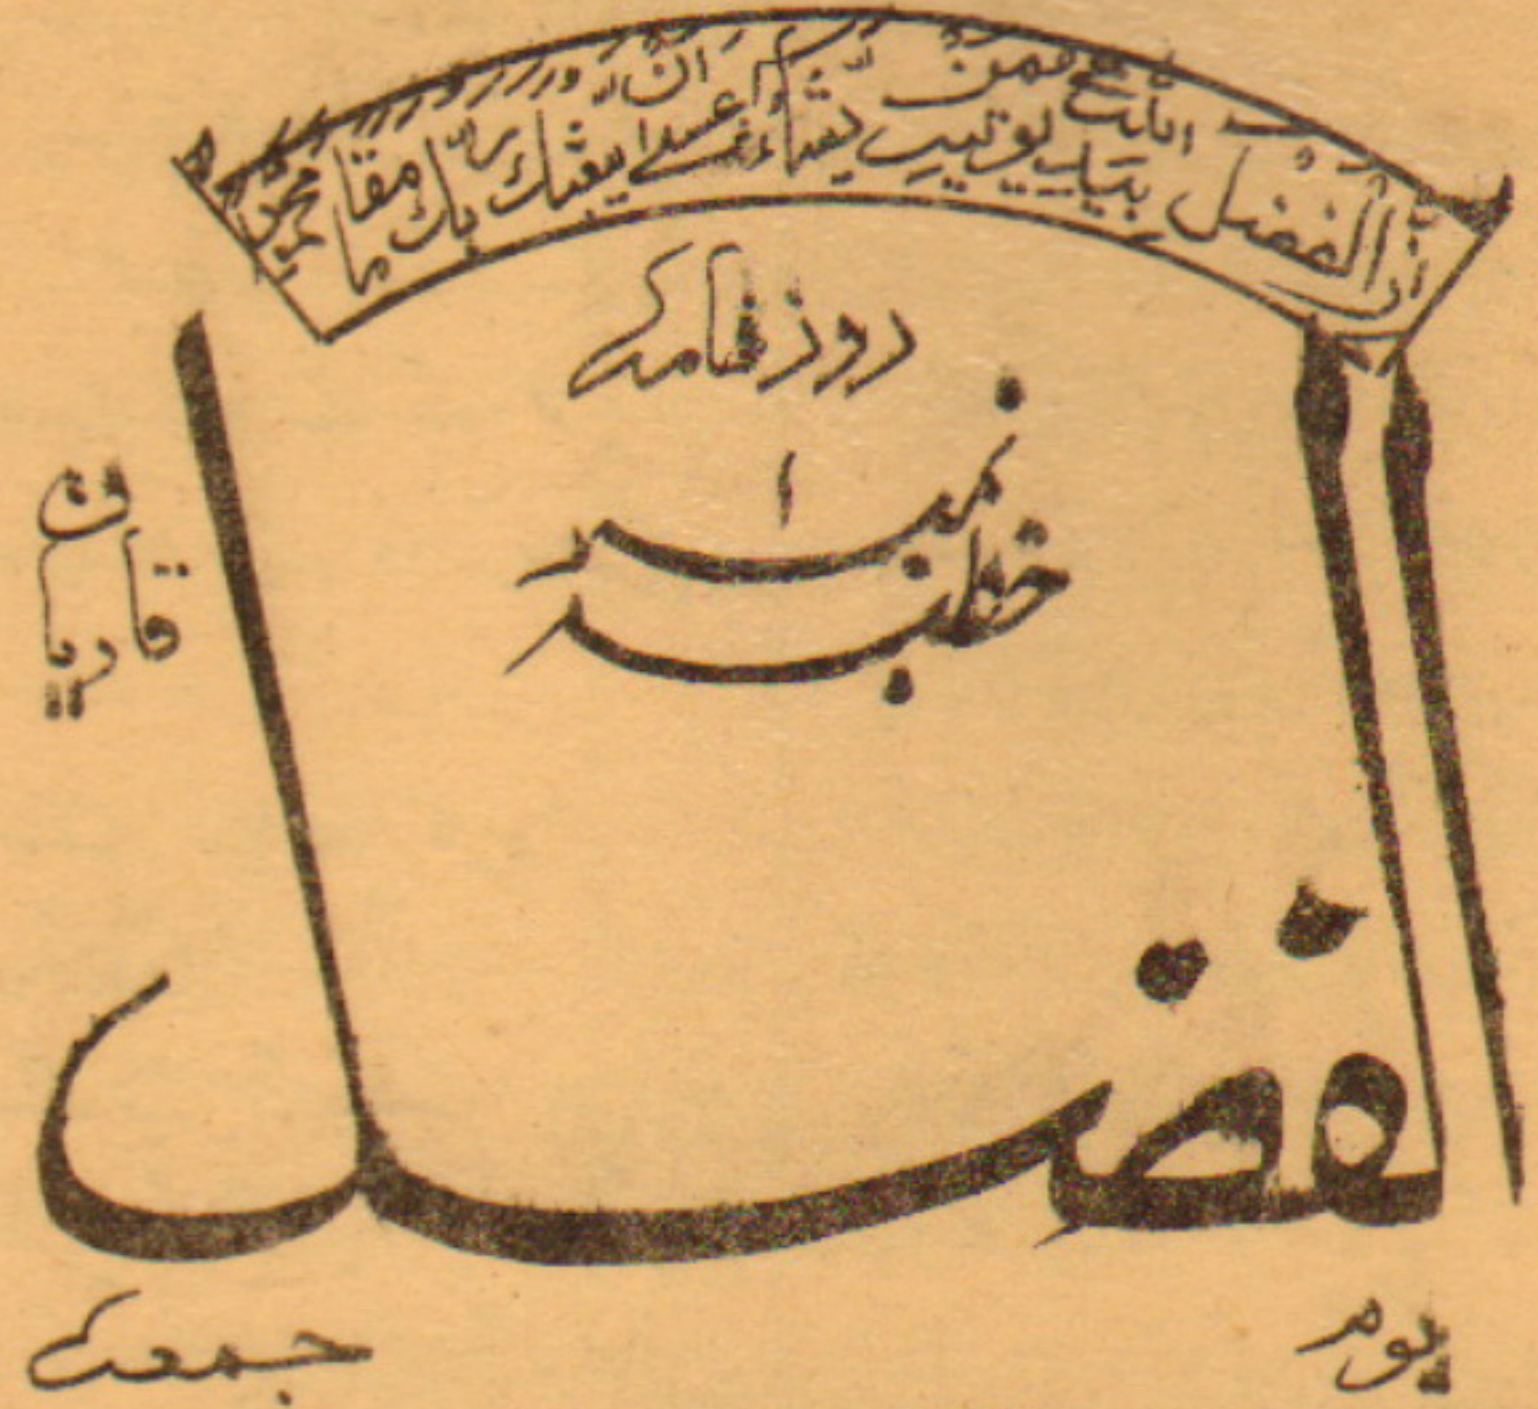 ان الفضل بید اللہ یوتیہ من یشاء عسٰی ان یبعثک ربک مقاما محمودا
روزنامہ
خطبہ نمبر ۱
قادیان
الفضل
یوم جمعہ